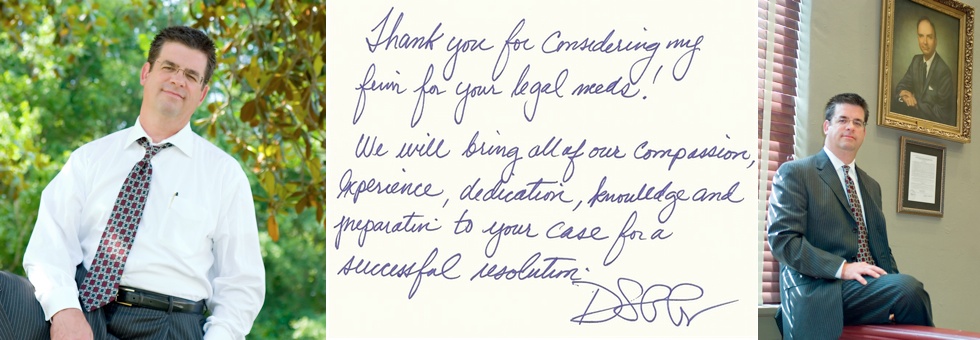 Thank you for considering my
firm for your legal needs!
We will bring all of our compassion,
experience, dedication, knowledge and
preparation to your case for a
successful resolution.